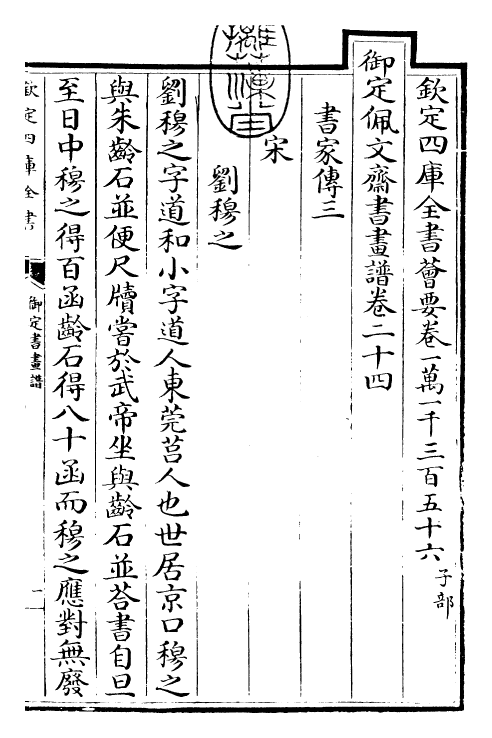 欽定四庫全書薈要卷一萬一千三百五十六子部
御定佩文齋書畫譜卷二十四
書家傳三
宋
劉穆之
劉穆之字道和小字道人東莞莒人也世居京口穆之
與朱齡石並便尺牘嘗於武帝坐與齡石並荅書自旦
至日中穆之得百函齡石得八十函而穆之應對無廢
欽定四庫全書
御定書畫譜